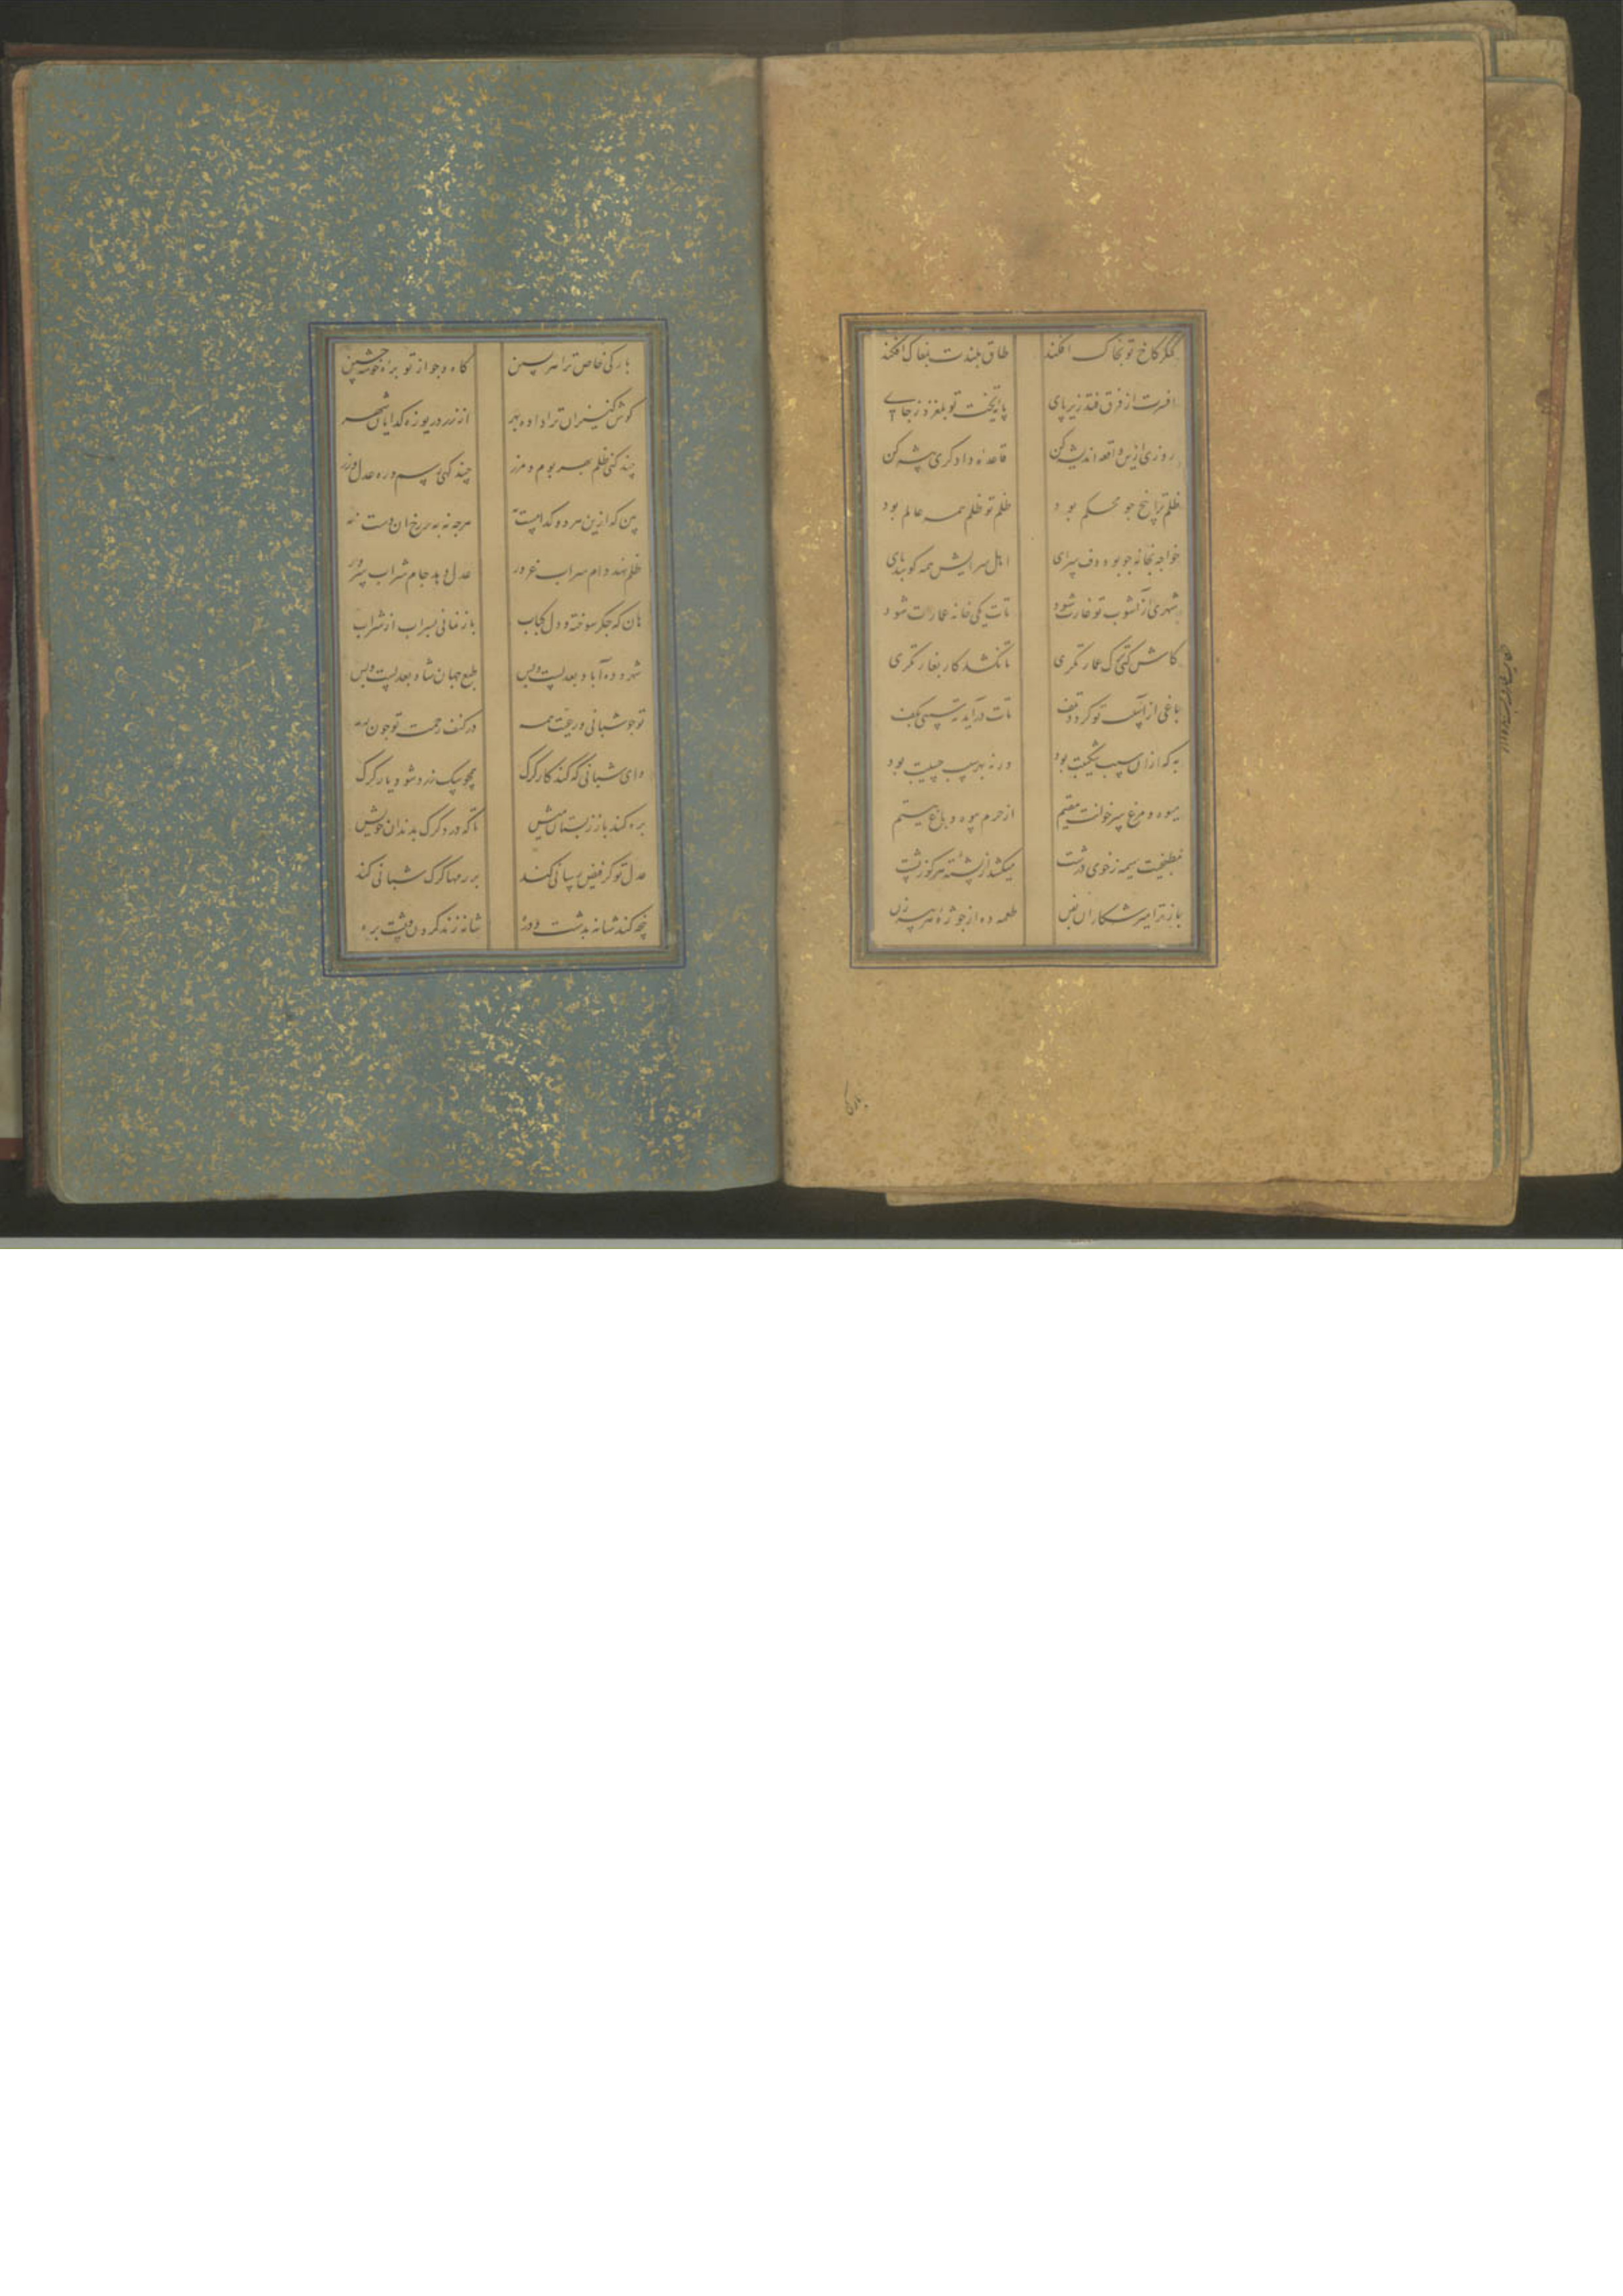 کنگر کاخ تو بخاک افکند طاق بلندت بمغاک افکند
افسرت از فرق فتد زیر پای پایه تخت تو بلغزد ز جای
روزی ازین واقعه اندیشه کن قاعده دادگری پیشه کن
ظلم ترا بیخ چو محکم بود ظلم تو ظلم همه عالم بود
خواجه بخانه چو بود دف سرای اهل سرایش همه کوبند پای
شهری از آشوب تو غارت شود تات یکی خانه عمارت شود
کاش کنی ترک عمارتگری تا نکشد کار بغارتگری
باغی از آسیب تو گردد تلف تات درآید سیبی بکف
به که ازان سیب شکیبت بود ورنه سیب بود
میوه و مرغ سر خوانت مقیم از حرم بیوه و باغ یتیم
مطبخیت هیمه ز خوی درشت میکشد از پشته هر کوزپشت
باز ترا میر شکاران بفن طعمه ده از جوژه هر پیرزن
بارگی
بارگی خاص ترا هر پسین کاه و جو از توبره خوشه چین
گوش کنیزان ترا داده بهر از زر دریوزه گدایان شهر
چند کنی ظلم بهر بوم و مرز چند گهی رسم و ره عدل ورز
بین که ازین هر دو کدامست به هرچه نه به بر رخ آن دست نه
ظلم نهد دام سراب غرور عدل دهد جام شراب سرور
هان که جگر سوخته و دل کباب باز نمانی بسراب از شراب
شهر و ده آباد بعدلست و بس طبع جهان شاد بعدلست و بس
تو چو شبانی و رعیت همه در کنف رحمت تو چون رمه
وای شبانی که کند کار گرگ همچو سگ زرد شود یار گرگ
بره کند باز ز پستان میش تا که درد گرگ بدندان خویش
عدل تو گر فیض رسانی کند بر رمها گرگ شبانی کند
پنجه کند شانه بدشت و دره شانه زند گردن و پشت بره